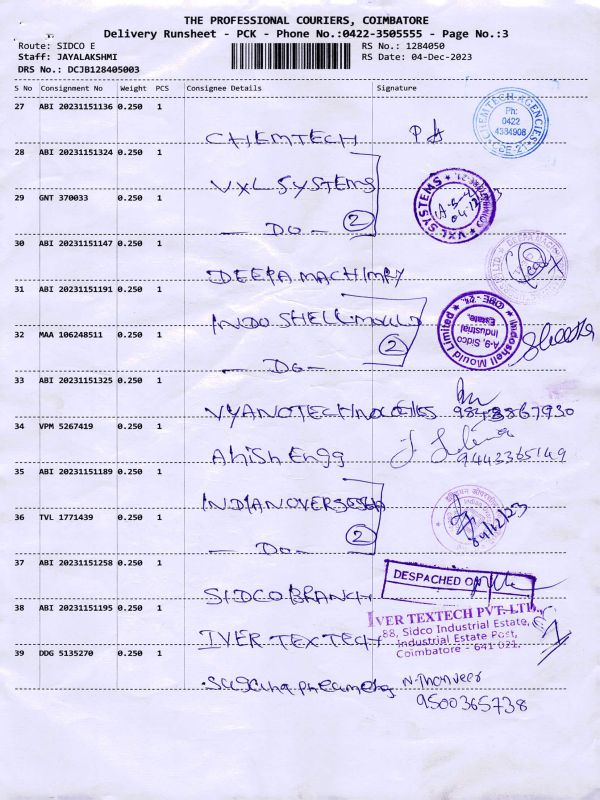 THE PROFESSIONAL COURIERS, COIMBATORE
Delivery Runsheet - PCK - Phone No.:0422-3505555 - Page No.:3
Route: SIDCO E
RS No.: 1284050
Staff: JAYALAKSHMI
RS Date: 04-Dec-2023
DRS No.: DCJB128405003
S No Consignment No Weight PCS Consignee Details Signature
27 ABI 20231151136 0.250 1
CHEMTECH
CHEMTECH AGENCIES
Ph:
0422
4384908
CBE-21
28 ABI 20231151324 0.250 1
VXL SYSTEMS
VXL SYSTEMS
29 GNT 370033 0.250 1
- DO - 2
30 ABI 20231151147 0.250 1
DEEPA MACHINRY
31 ABI 20231151191 0.250 1
INDO SHELL MOULD
Indoshell Mould Limited
A-9, Sidco
Industrial
Estate,
CBE-21.
32 MAA 106248511 0.250 1
- DO - 2
33 ABI 20231151325 0.250 1
9843367930
34 VPM 5267419 0.250 1
Ahish Engg
9442365149
35 ABI 20231151189 0.250 1
INDIAN OVERSEAS
36 TVL 1771439 0.250 1
- DO - 2
04/12/23
37 ABI 20231151258 0.250 1
DESPACHED ON
SIDCO BRANCH
38 ABI 20231151195 0.250 1
IVER TEX TECH
IVER TEXTECH PVT. LTD.,
88, Sidco Industrial Estate,
Industrial Estate Post,
Coimbatore - 641 021.
39 DDG 5135270 0.250 1
N. Thanveer
9500365738